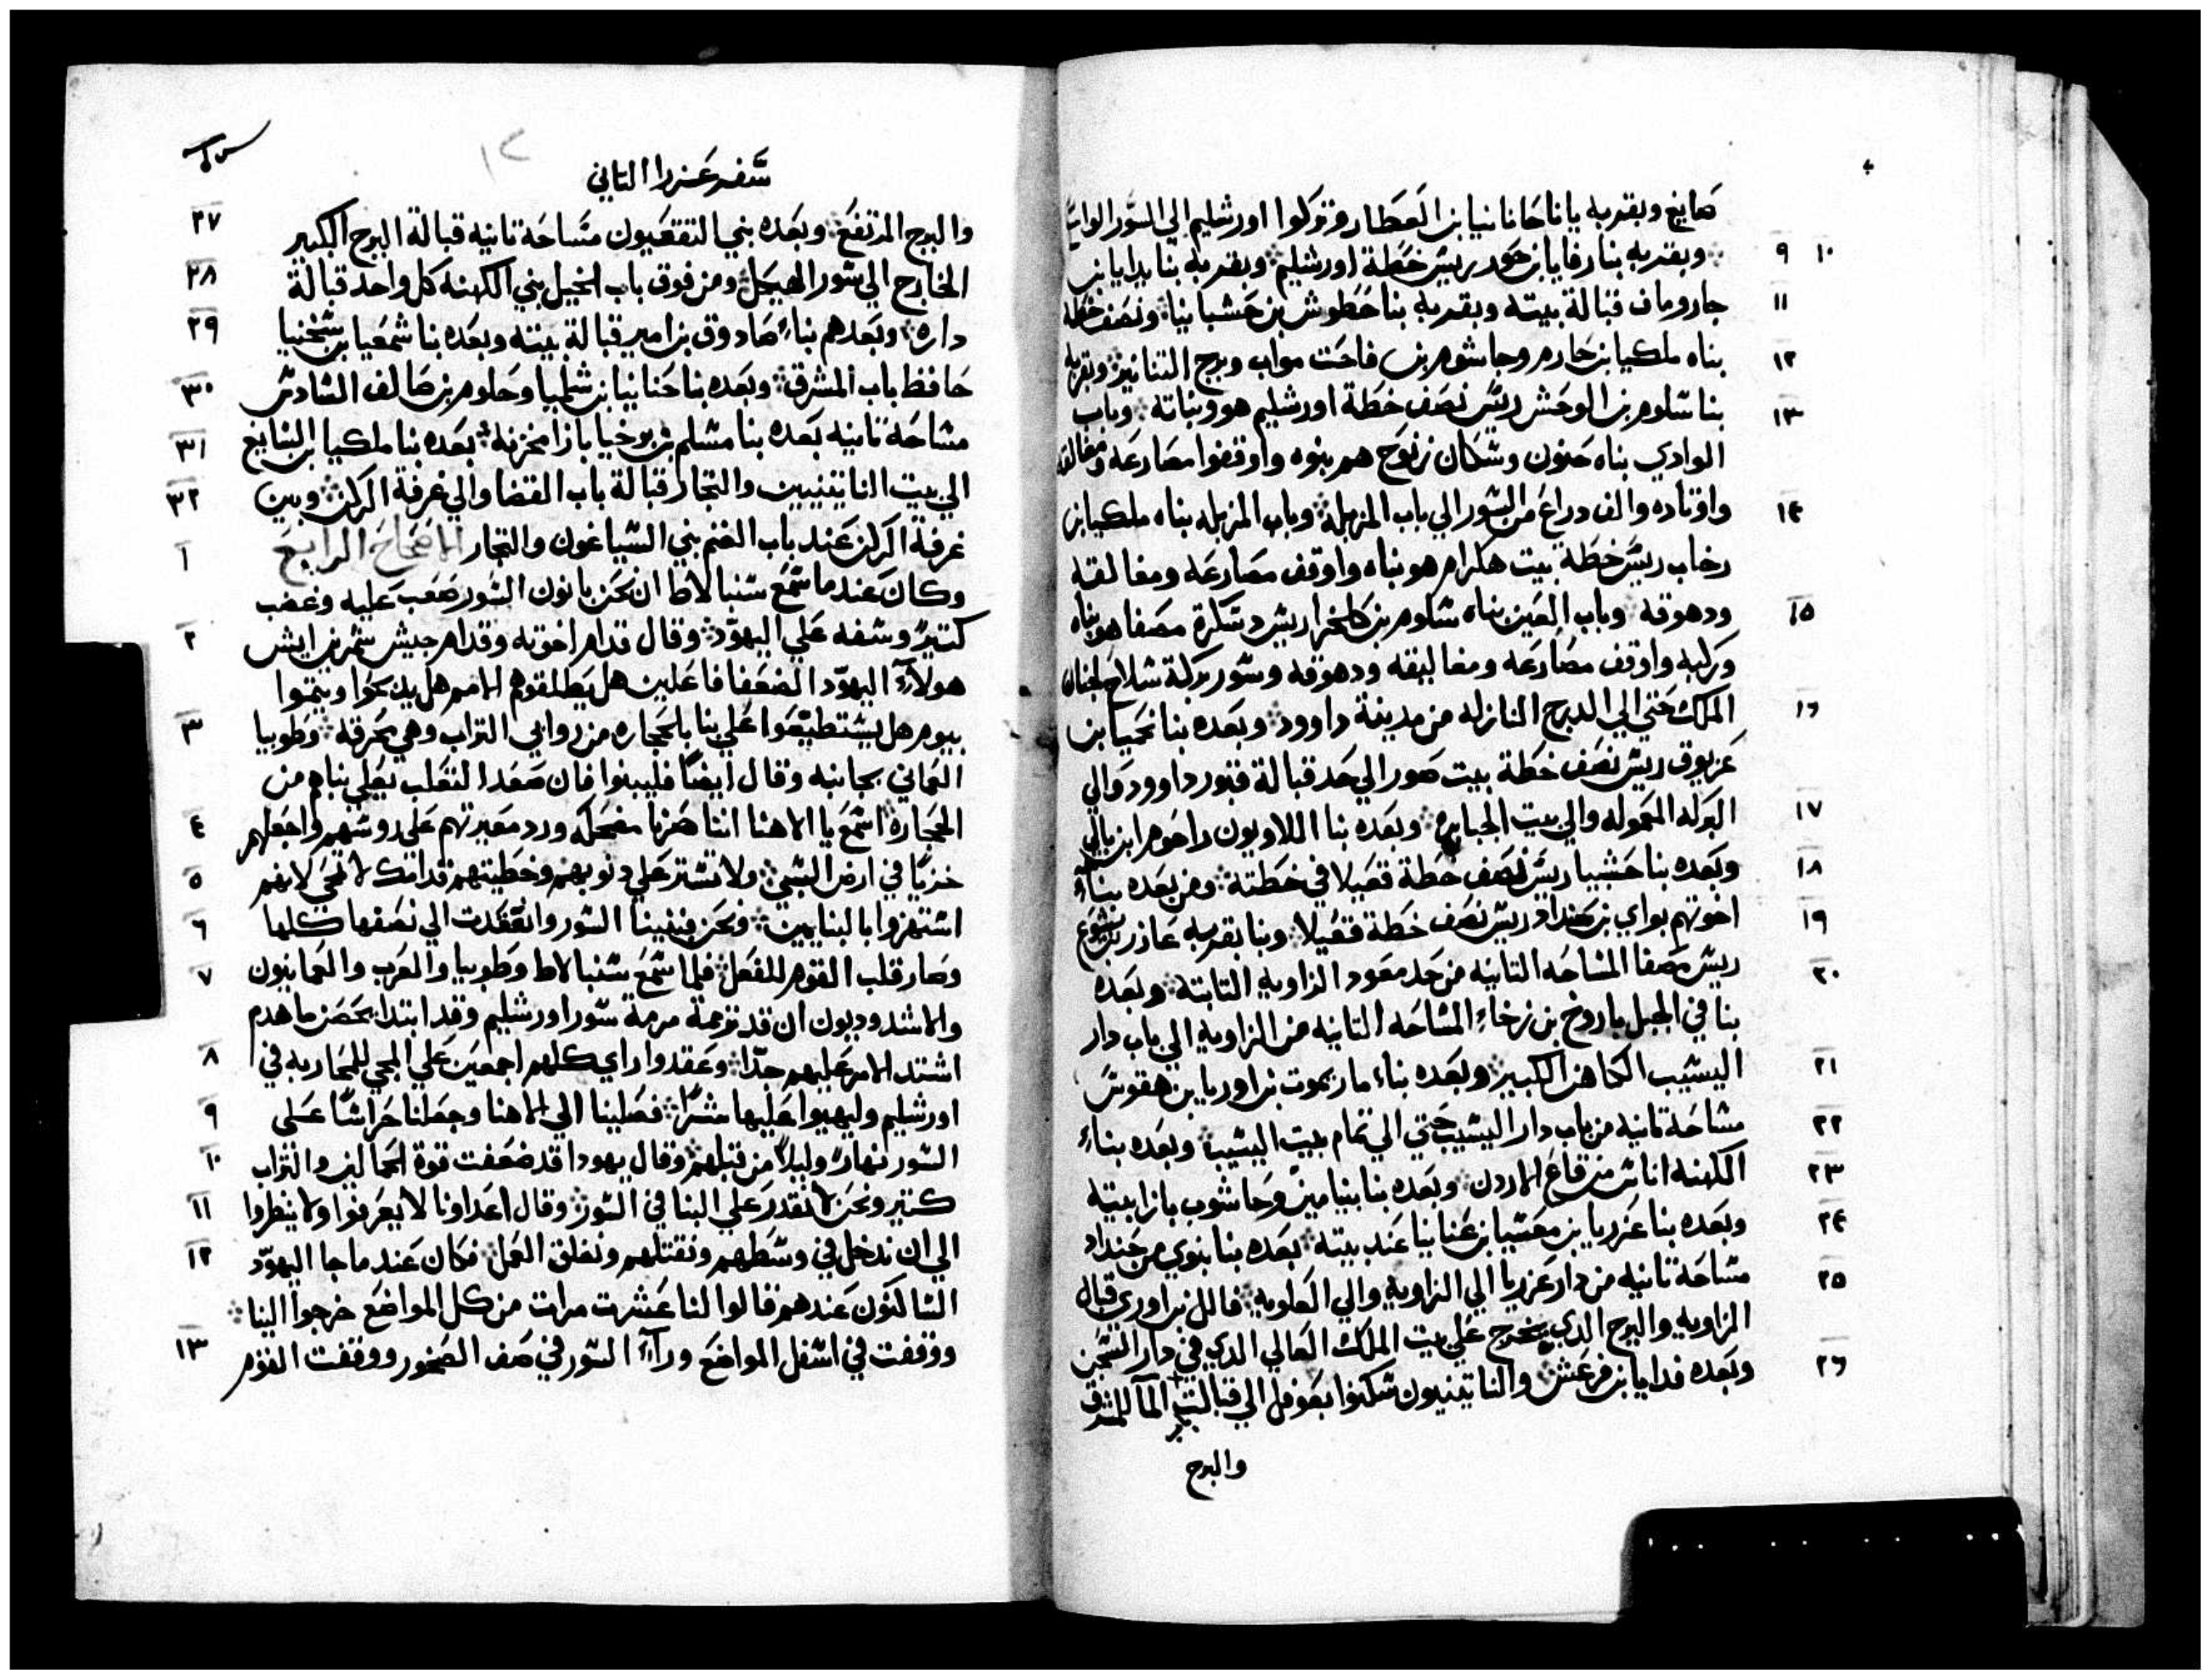 صايغ وبقربه يانا حانانيا بن العطار وتركوا اورشليم الي السور الواسَ
٩ ١٠ وبقربه بنا رفايا بن حور ريس خطة اورشليم وبقربه بنا يدايا بن
١١ جاروماف قبالة بيته وبقربه بنا حطوش بن حشبانيا ونصف خطه
١٢ بناه ملكيا بن حارم وحاشوم بن فاحت مواب وبرج التنانير وبقربه
١٣ بنا سلوم بن الوحش ريس نصف خطة اورشليم هو وبناته وباب
الوادي بناه حنون وسكان زنوح هم بنوه واوقفوا مصارعه ومغالقه
١٤ واوتاده والف دراع من السور الي باب المزبله وباب المزبله بناه ملكيا بن
رخاب ريس خطة بيت هكرام هو بناه واوقف مصارعه ومغالقته
١٥ ودهوقه وباب العين بناه شلوم بن كلخرا ريس دسكرة مصفا هو بناه
وركبه واوقف مصارعه ومغاليقه ودهوقه وسور بركة شلاح لجنان
١٦ الملك حتي الي الدرج النازله من مدينة داوود وبعده بنا نحميا بن
عزبوق ريس نصف خطة بيت صور الي حد قبالة قبور داوود والي
١٧ البركه المعموله والي بيت الجبابره وبعده بنا اللاويون راحوم ابن باني
١٨ وبعده بنا حشبيا ريس نصف خطة قعيلا في خطته ومن بعده بناء
١٩ اخوتهم بواي بن حنداد ريس نصف خطة قعيلا وبنا بقربه عاذر بن يشوع
٢٠ ريس مصفا المساحه التانيه من حد مصعود الزاويه التابتة وبعده
بنا في الجبل باروخ بن زخاء المساحه التانيه من الزاويه الي باب دار
٢١ اليشيب الكاهن الكبير وبعده بناء ماريموت بن اوريا بن هقوش
٢٢ مساحة تانيه من باب دار اليشيب حتي الي تمام بيت اليشيب وبعده بناء
٢٣ الكهنه اناس من قاع الاردن وبعده بنا بنيامين وحاشوب بازا بيته
٢٤ وبعده بنا عزريا بن معشيا بن عنانيا عند بيته بعده بنا بنوي من حنداد
٢٥ مساحة تانيه من دار عزريا الي الزاويه والي العلويه فالل بن اوري قبال
الزاويه والبرج الدي يخرج علي بيت الملك العالي الدي في دار السجن
٢٦ وبعده فدايا بن فرعش والناتينيون سكنوا بعوفل الي قبالت باب الما للمشرق
والبرج
سفر عزرا التاني
٢٧ والبرج المرتفع وبعده بني التقعيون مساحة تانيه قبالة البرج الكبير
٢٨ الخارج الي سور الهيكل ومن فوق باب الخيل بني الكهنه كل واحد قبالة
٢٩ داره وبعدهم بناء صادوق بن امير قبالة بيته وبعده بنا شمعيا بن شخنيا
٣٠ حافظ باب المشرق وبعده بنا حنانيا بن شلميا وحلوم بن صالف السادس
٣١ مساحة تانيه بعده بنا مشلم بن برخيا بازا مخزنه بعده بنا ملكيا ابن الصايغ
٣٢ الي بيت الناتينيين والتجار قبالة باب القضا والي غرفة الركن وبين
١ غرفة الركن عند باب الغنم بني الصياغون والتجار الاصحاح الرابع
وكان عندما سمع سنبالاط ان نحن بانون السور صعب عليه وغضب
٢ كتير وسفه علي اليهود وقال قدام اخوته وقدام جيش شمرين ايش
هولآء اليهود الضعفا فاعلين هل يطلقوهم الامم هل يدبحوا ويتموا
٣ بيوم هل يستطيعوا علي بنا بالحجاره من روابي التراب وهي محرقه وطوبيا
العماني بجانبه وقال ايضاً فليبنوا فان صعد التعلب يعلي بناهم من
٤ الحجاره اسمع يا الاهنا اننا صرنا مضحكه ورد معيرتهم علي روسهم واجعلهم
٥ خزيا في ارض السبي ولا تستر علي دنوبهم وخطيتهم قدامك لا تمحي لانهم
٦ استهزوا بالبنايين ونحن فبنينا السور وانعقدت الي نصفها كلها
٧ وصار قلب القوم للفعل فلما سمع سنبالاط وطوبيا والعرب والعمانيون
والاشدوديون ان قد نزمة مرمة سور اورشليم وقد ابتدا يحصن ما هدم
٨ اشتد الامر عليهم جدا وعقدوا راي كلهم اجمعين علي المجي للمحاربه في
٩ اورشليم وليهيوا عليها شراً فصلينا الي الاهنا وجعلنا حراسًا علي
١٠ السور نهارً وليلاً من قبلهم وقال يهودا قد ضعفت قوة الحمالين والتراب
١١ كتير ونحن لا نقدر علي البنا في السور وقال اعداونا لا يعرفوا ولا ينظروا
١٢ الي ان ندخل في وسطهم ونقتلهم ونغلق العمل فكان عندما جا اليهود
الساكنون عندهم قالوا لنا عشرت مرات من كل المواضع خرجوا الينا
١٣ ووقفت في اسفل المواضع ورآء السور في صف الصخور ووقفت القوم